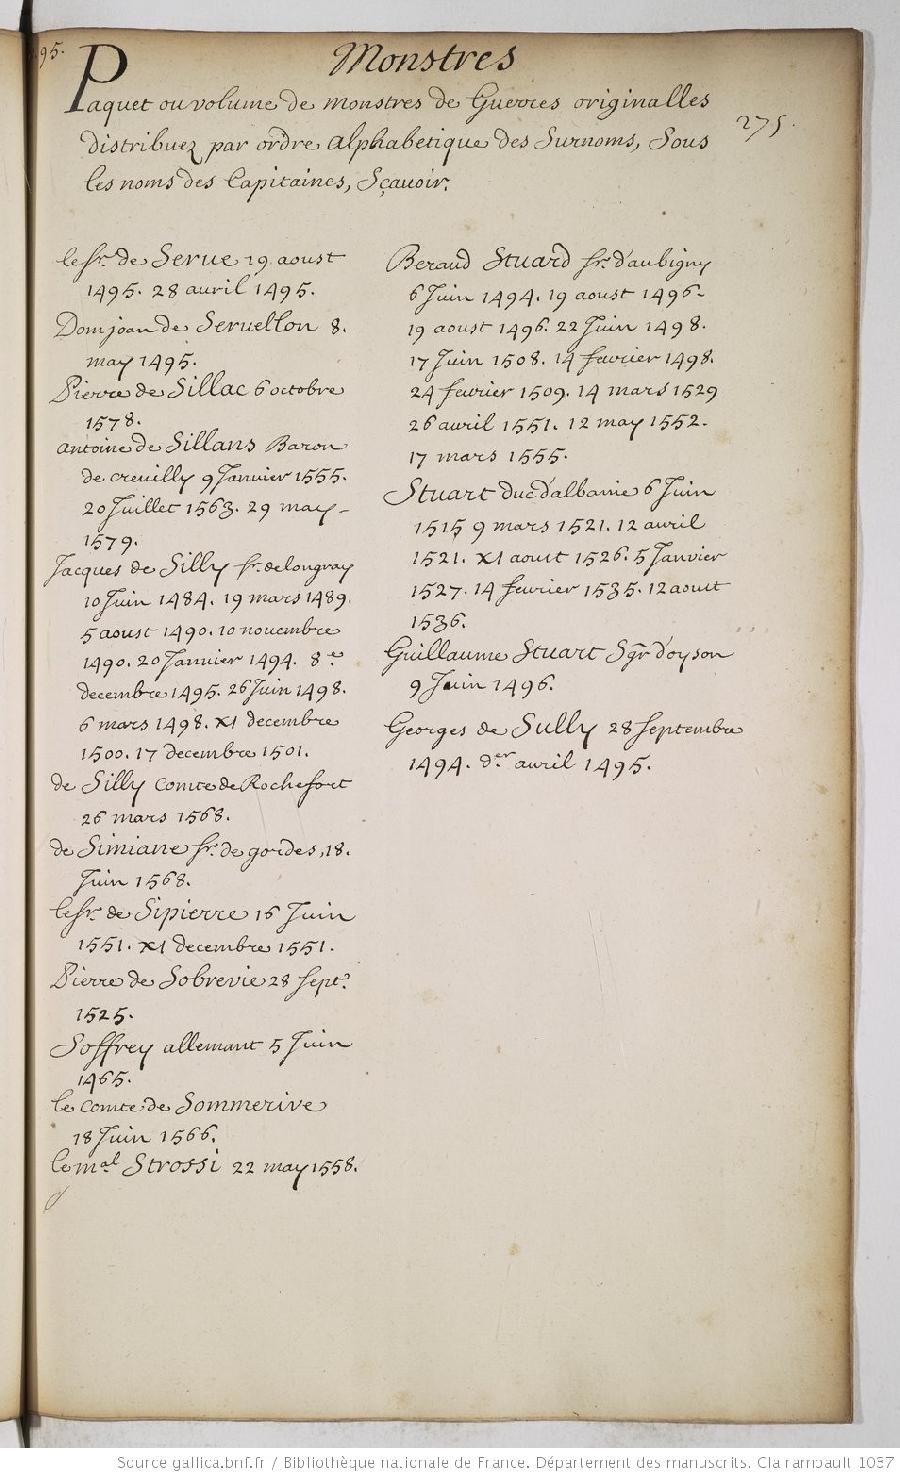 95.
Monstres
275.
Paquet ou volume de monstres de Guerres originalles
distribuez par ordre alphabetique des Surnoms, Sous
les noms des Capitaines, Sçauoir.
le sr. de Serue 19 aoust
1495. 28 auril 1495.
Dom joan de Seruellon 8.
may 1495.
Pierre de Sillac 6 octobre
1578.
antoine de Sillans Baron
de creuilly 9 Januier 1555.
20 Juillet 1563. 29 may
1579.
Jacques de Silly sr. de longray
10 Juin 1484. 19 mars 1489.
5 aoust 1490. 10 nouembre
1490. 20 Januier 1494. 8e
decembre 1495. 26 Juin 1498.
6 mars 1498. XI decembre
1500. 17 decembre 1501.
de Silly comte de Rochefort
26 mars 1568.
de Simiane sr. de gordes, 18.
Juin 1568.
le sr. de Sipierre 16 Juin
1551. XI decembre 1551.
Pierre de Sobrevie 28 sept.
1525.
Soffrey allemant 5 Juin
1465.
le comte de Sommerive
18 Juin 1566.
le mal Strossi 22 may 1558.
Beraud Stuard sr. d'aubigny
6 Juin 1494. 19 aoust 1496.
19 aoust 1496. 22 Juin 1498.
17 Juin 1508. 14 feurier 1498.
24 feurier 1509. 14 mars 1529
26 auril 1551. 12 may 1552.
17 mars 1555.
Stuart duc d'albanie 6 Juin
1515 9 mars 1521. 12 auril
1521. XI aoust 1526. 5 Januier
1527. 14 feurier 1535. 12 aoust
1536.
Guillaume Stuart Sgr d'oyson
9 Juin 1496.
Georges de Sully 28 septembre
1494. der auril 1495.
Source gallica.bnf.fr / Bibliothèque nationale de France. Département des manuscrits. Clairambault 1037